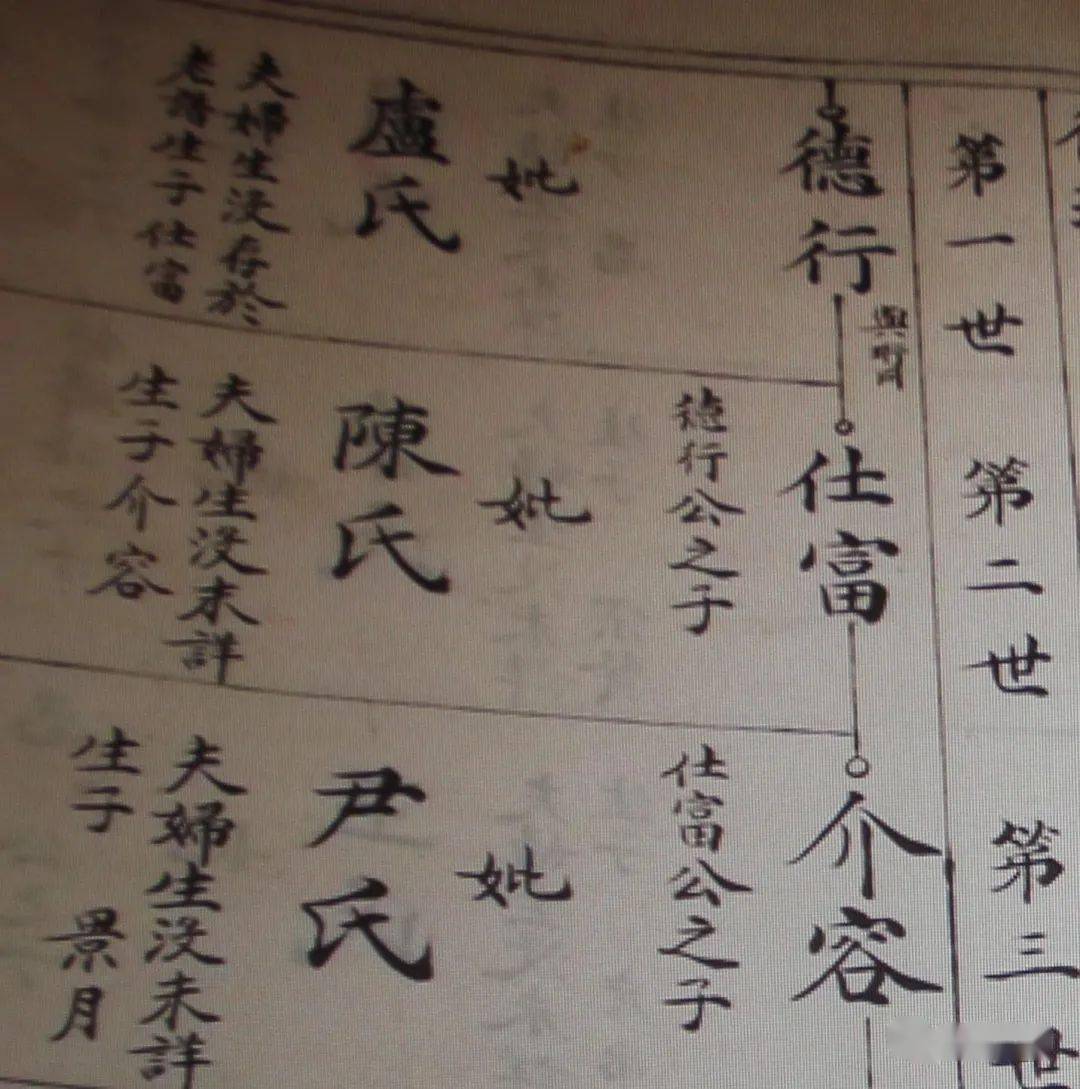 第一世
德行
與賢
妣
盧氏
夫婦生没存於
老譜生子仕富
第二世
仕富
德行公之子
妣
陳氏
夫婦生没未詳
生子介容
第三世
介容
仕富公之子
妣
尹氏
夫婦生没未詳
生子 景月